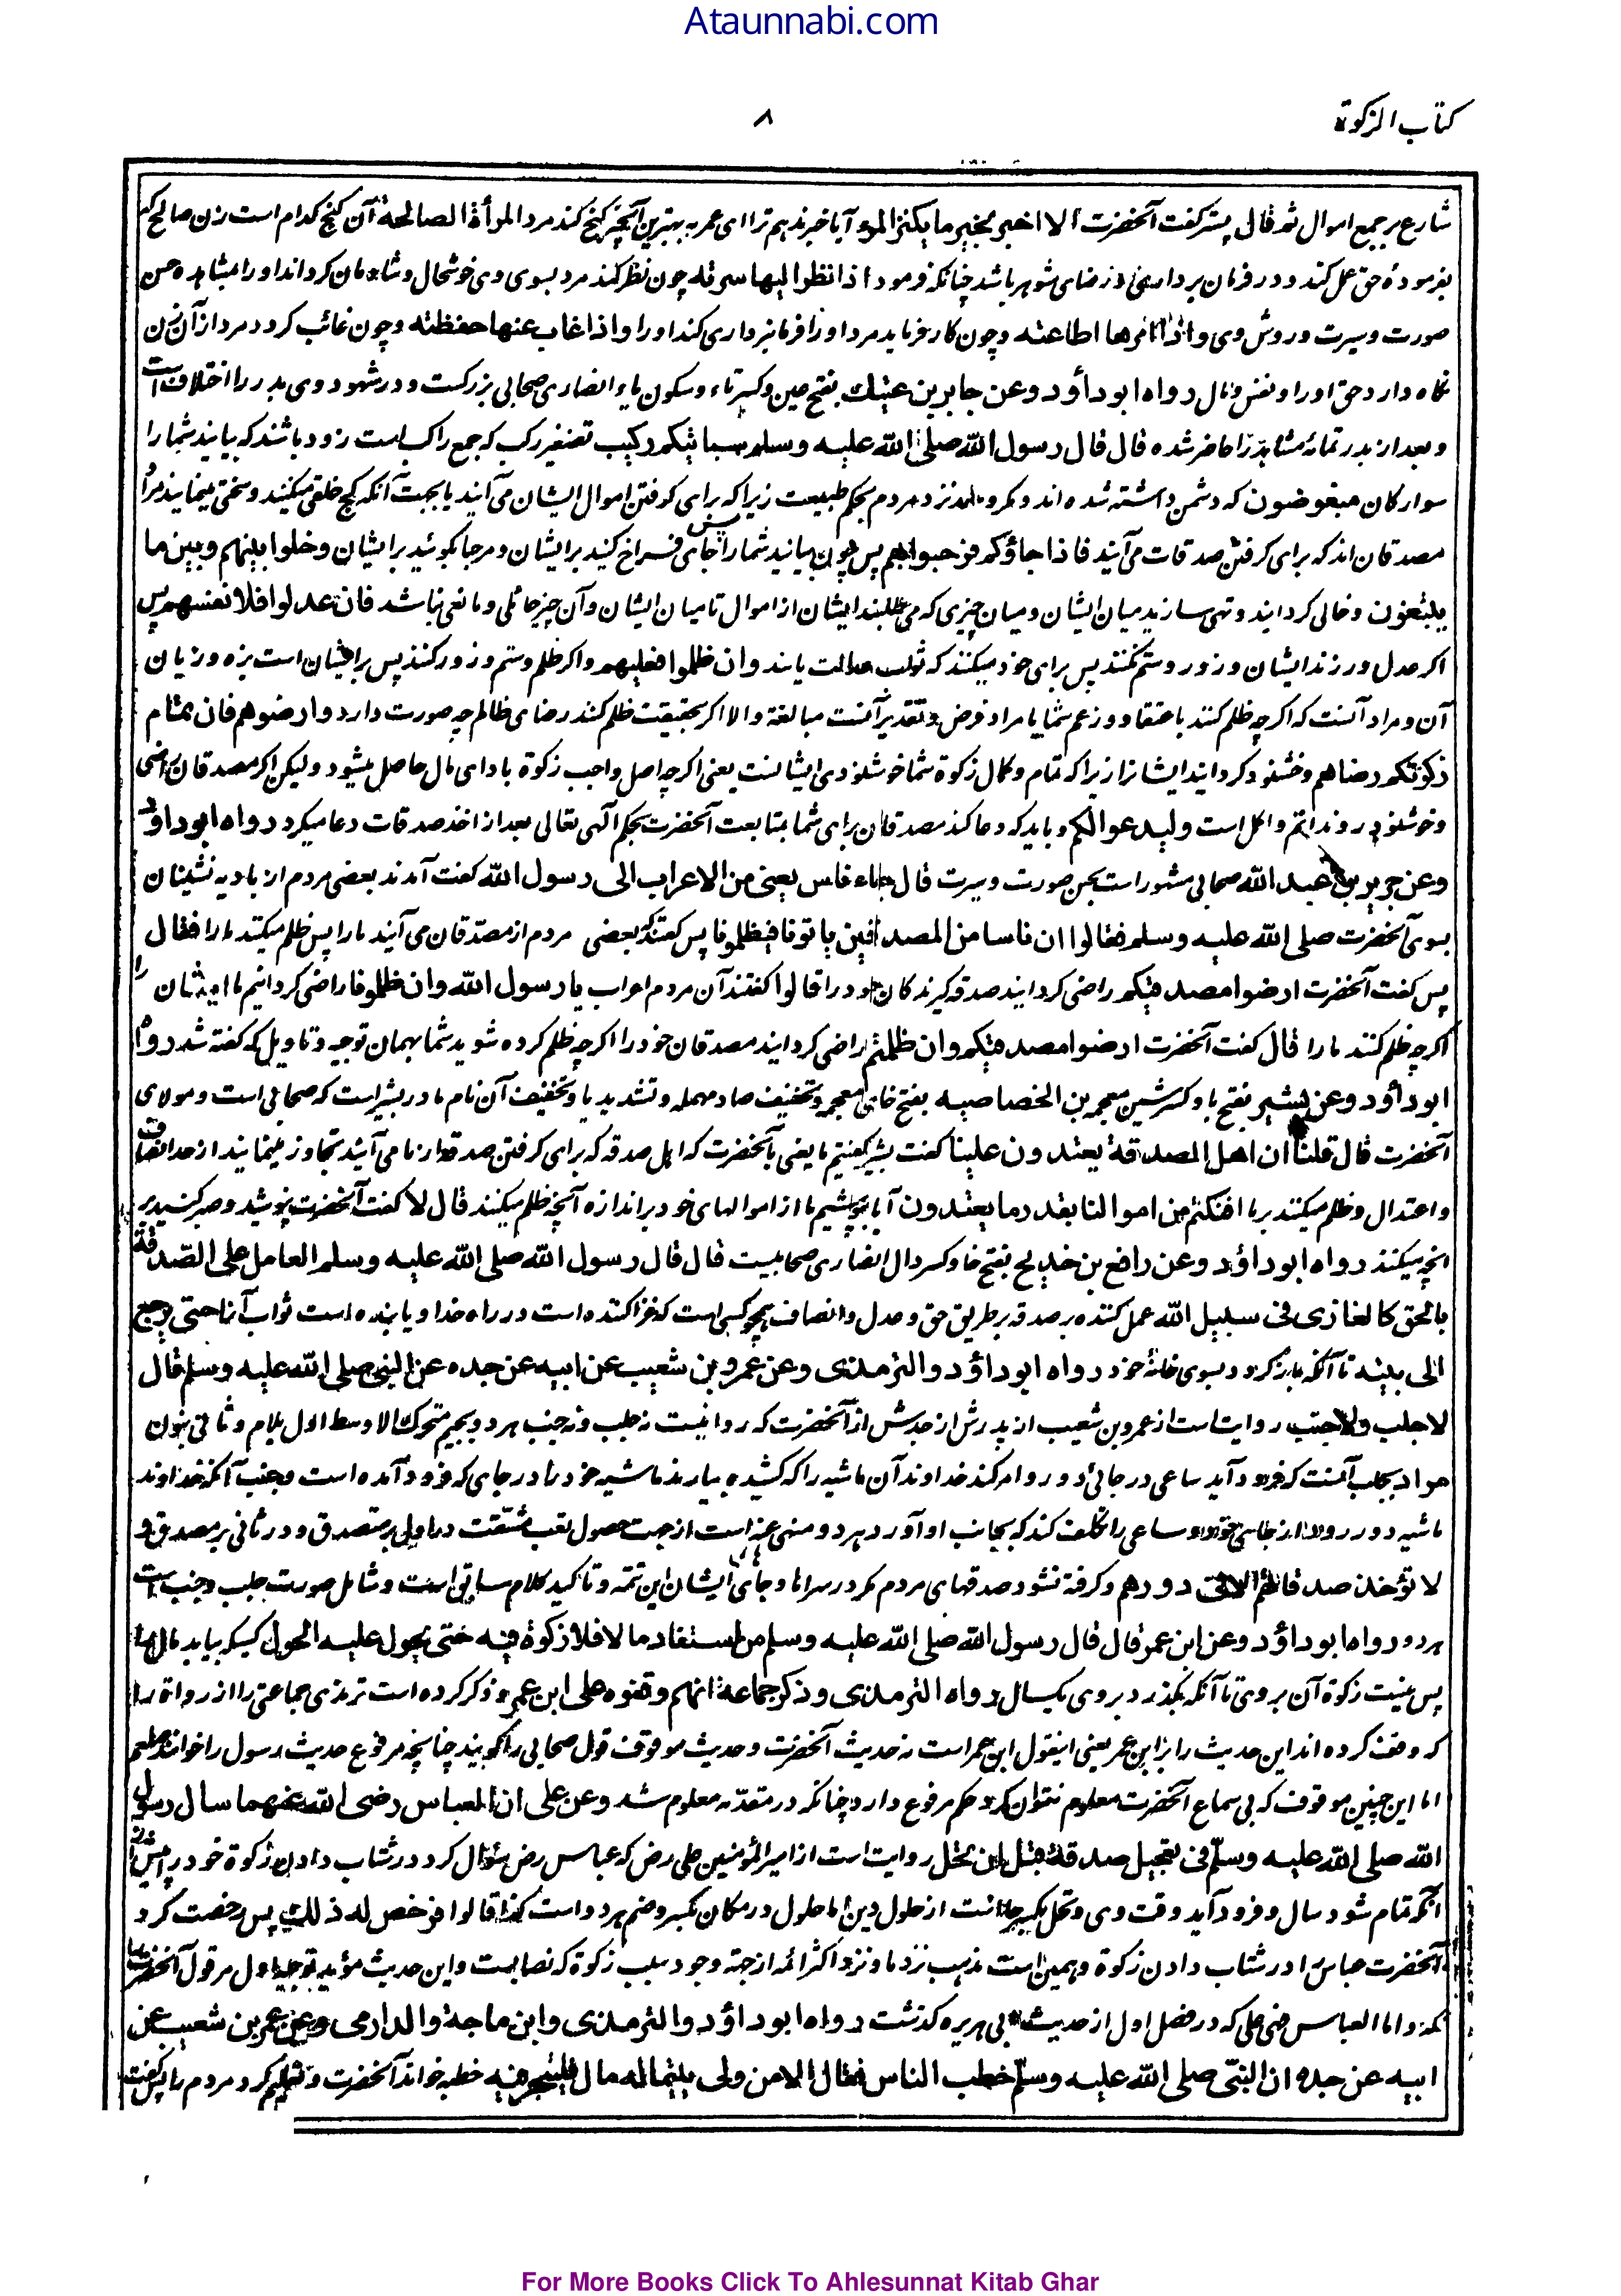 Ataunnabi.com
کتاب الزکوة
۸
شارع بر جمع اموال ثم قال پستر گفت آنحضرت الا اخبرك بخیر ما یکنز المرء آیا خبر ندهم ترا ای عمر به بهترین آنچیز که گنج کند مرد المرأة الصالحة آن گنج کدام است زن صالح که
بفرمودهٔ حق عمل کند و در فرمان برداری و رضای شوهر باشد چنانکه فرمود اذا نظر الیها سرته چون نظر کند مرد بسوی وی خوشحال و شادمان گرداند او را مشاهده حسن
صورت و سیرت و روش وی و اذا امرها اطاعته و چون کار فرماید مرد او را فرمانبرداری کند او را و اذا غاب عنها حفظته و چون غائب گردد مرد از آن زن
نگاه دارد حق او را و نفس و مال رواه ابوداؤد وعن جابر بن عتیك بفتح عین و کسر تاء و سکون یاء انصاری صحابی بزرگست و در شهود وی بدر را اختلاف است
و بعد از بدر تمامه مشاهد را حاضر شده قال قال رسول الله صلی الله علیه وسلم سیاتیکم رکیب تصغیر رکب که جمع راکب است زود باشد که بیایند شما را
سوارکان مبغوضون که دشمن داشته شده اند و مکروه اند نزد مردم بحکم طبیعت زیرا که برای گرفتن اموال ایشان می آیند یا بجهت آنکه کج خلقی میکنند و سختی مینمایند مراد
مصدقان اند که برای گرفتن صدقات می آیند فاذا جاؤکم فرحبوا بهم پس چون بیایند شما را جای فراخ کنید برایشان و مرحبا گوئید برایشان وخلوا بینهم وبین ما
یبتغون و خالی گردانید و تهی سازید میان ایشان و میان چیزی که می طلبند ایشان از اموال تا میان ایشان و آن چیز حائلی و مانعی نباشد فان عدلوا فلانفسهم پس
اگر عدل ورزند ایشان و زور و ستم نکنند پس برای خود میکنند که ثواب عدالت یابند وان ظلموا فعلیهم و اگر ظلم و ستم و زور کنند پس بر ایشان است بزه و زیان
آن و مراد آنست که اگر چه ظلم کنند باعتقاد و زعم شما یا مراد فرض و تقدیر آنست مبالغة والا اگر بحقیقت ظلم کنند رضای ظالم چه صورت دارد وارضوهم فان تمام
زکوتکم رضاهم و خشنود گردانید ایشانرا زیرا که تمام و کمال زکوة شما خوشنودی ایشانست یعنی اگر چه اصل واجب زکوة بادای مال حاصل میشود ولیکن اگر مصدقان راضی
و خوشنود روند اتم و اکمل است ولیدعوا لکم و باید که دعا کنند مصدقان برای شما بمتابعت آنحضرت بحکم الهی تعالی بعد از اخذ صدقات دعا میکرد رواه ابوداؤد
وعن جریر بن عبد الله صحابی مشهور است بحسن صورت و سیرت قال جاء ناس یعنی من الاعراب الی رسول الله گفت آمدند بعضی مردم از بادیه نشینان
بسوی آنحضرت صلی الله علیه وسلم فقالوا ان ناسا من المصدقین یاتونا فیظلمونا پس گفتند که بعضی مردم از مصدّقان می آیند ما را پس ظلم میکنند ما را فقال
پس گفت آنحضرت ارضوا مصدقیکم راضی گردانید صدقه گیرندکان خود را قالوا گفتند آن مردم اعراب یا رسول الله وان ظلمونا راضی گردانیم ما ایشان را
اگر چه ظلم کنند ما را قال گفت آنحضرت ارضوا مصدقیکم وان ظلمتم راضی گردانید مصدقان خود را اگر چه ظلم کرده شوید شما بهمان توجیه و تاویل که گفته شد رواه
ابوداؤد وعن بشیر بفتح با و کسر شین معجمه بن الخصاصیه بفتح خای معجمه و تخفیف صاد مهمله و تشدید یا و تخفیف آن نام مادر بشیر است که صحابی است و مولای
آنحضرت قال قلنا ان اهل الصدقة یعتدون علینا گفت بشیر گفتیم ما یعنی بآنحضرت که اهل صدقه که برای گرفتن صدقه از ما می آیند تجاوز مینمایند از حد انصاف
و اعتدال و ظلم میکنند بر ما افنکتم من اموالنا بقدر ما یعتدون آیا بپوشیم ما از اموالهای خود بر اندازه آنچه ظلم میکنند قال لا گفت آنحضرت نپوشید و صبر کنید بر
انچه میکنند رواه ابوداؤد وعن رافع بن خدیج بفتح خا و کسر دال انصاری صحابیست قال قال رسول الله صلی الله علیه وسلم العامل علی الصّدقة
بالحق کالغازی فی سبیل الله عمل کننده بر صدقه بر طریق حق و عدل و انصاف همچو کسی است که غزا کننده است در راه خدا و یابنده است ثواب آنرا حتی یرجع
الی بیته تا آنکه باز گردد بسوی خانهٔ خود رواه ابوداؤد والترمذی وعن عمرو بن شعیب عن ابیه عن جده عن النبی صلی الله علیه وسلم قال
لا جلب ولا جنب روایت است از عمرو بن شعیب از پدرش از جدش از آنحضرت که روا نیست نه جلب و نه جنب هر دو بجیم متحرك الاوسط اول بلام و ثانی بنون
مراد بجلب آنست که فرود آید ساعی در جائی دور و امر کند خداوند آن ماشیه را که کشیده بیارند ماشیه خود را در جای که فرود آمده است و جنب آنکه خداوند
ماشیه دور رود از جای خود و ساعی را تکلف کند که بجانب او آورد و هر دو منهی عنه است از جهت حصول تعب و مشقت در اول بر متصدق و در ثانی بر مصدق و
لا تؤخذ صدقاتهم الا فی دورهم و گرفته نشود صدقهای مردم مگر در سراها و جاهای ایشان این تتمه و تاکید کلام سابق است و شامل صورت جلب و جنب است
هر دو رواه ابوداؤد وعن ابن عمر قال قال رسول الله صلی الله علیه وسلم من استفاد مالا فلا زکوة فیه حتی یحول علیه الحول کسیکه بیابد مال را
پس نیست زکوة آن بر وی تا آنکه بگذرد بر وی یکسال رواه الترمذی وذکر جماعة انهم وقفوه علی ابن عمر و ذکر کرده است ترمذی جماعتی را از رواة را
که وقف کرده اند این حدیث را بر ابن عمر یعنی اینقول ابن عمر است نه حدیث آنحضرت و حدیث موقوف قول صحابی را گویند چنانچه مرفوع حدیث رسول را خوانند صلعم
اما این چنین موقوف که بی سماع آنحضرت معلوم نتوان کرد حکم مرفوع دارد چنانکه در مقدّمه معلوم شد وعن علی ان العباس رضی الله عنهما سال رسول
الله صلی الله علیه وسلّم فی تعجیل صدقة قبل ان تحل روایت است از امیر المؤمنین علی رض که عباس رض سؤال کرد در شتاب دادن زکوة خود پیش از
آنکه تمام شود سال و فرود آید وقت وی و تحل بکسر حا است از حلول دین اما حلول در مکان بکسر و ضم هر دو است کذا قالوا فرخص له ذلك پس رخصت کرد
آنحضرت عباس را در شتاب دادن زکوة و همین است مذهب نزد ما و نزد اکثر ائمه از جهة وجود سبب زکوة که نصابست و این حدیث مؤید توجیه اول مر قول آنحضرت را
که و اما العباس فهی علی که در فصل اول از حدیث ابی هریره گذشت رواه ابوداؤد والترمذی وابن ماجة والدارمی وعن عمرو بن شعیب عن
ابیه عن جده ان النبیّ صلی الله علیه وسلّم خطب الناس فقال الا من ولی یتیما له مال فلیتجر فیه خطبه خواند آنحضرت و تعلیم کرد مردم را پس گفت
For More Books Click To Ahlesunnat Kitab Ghar